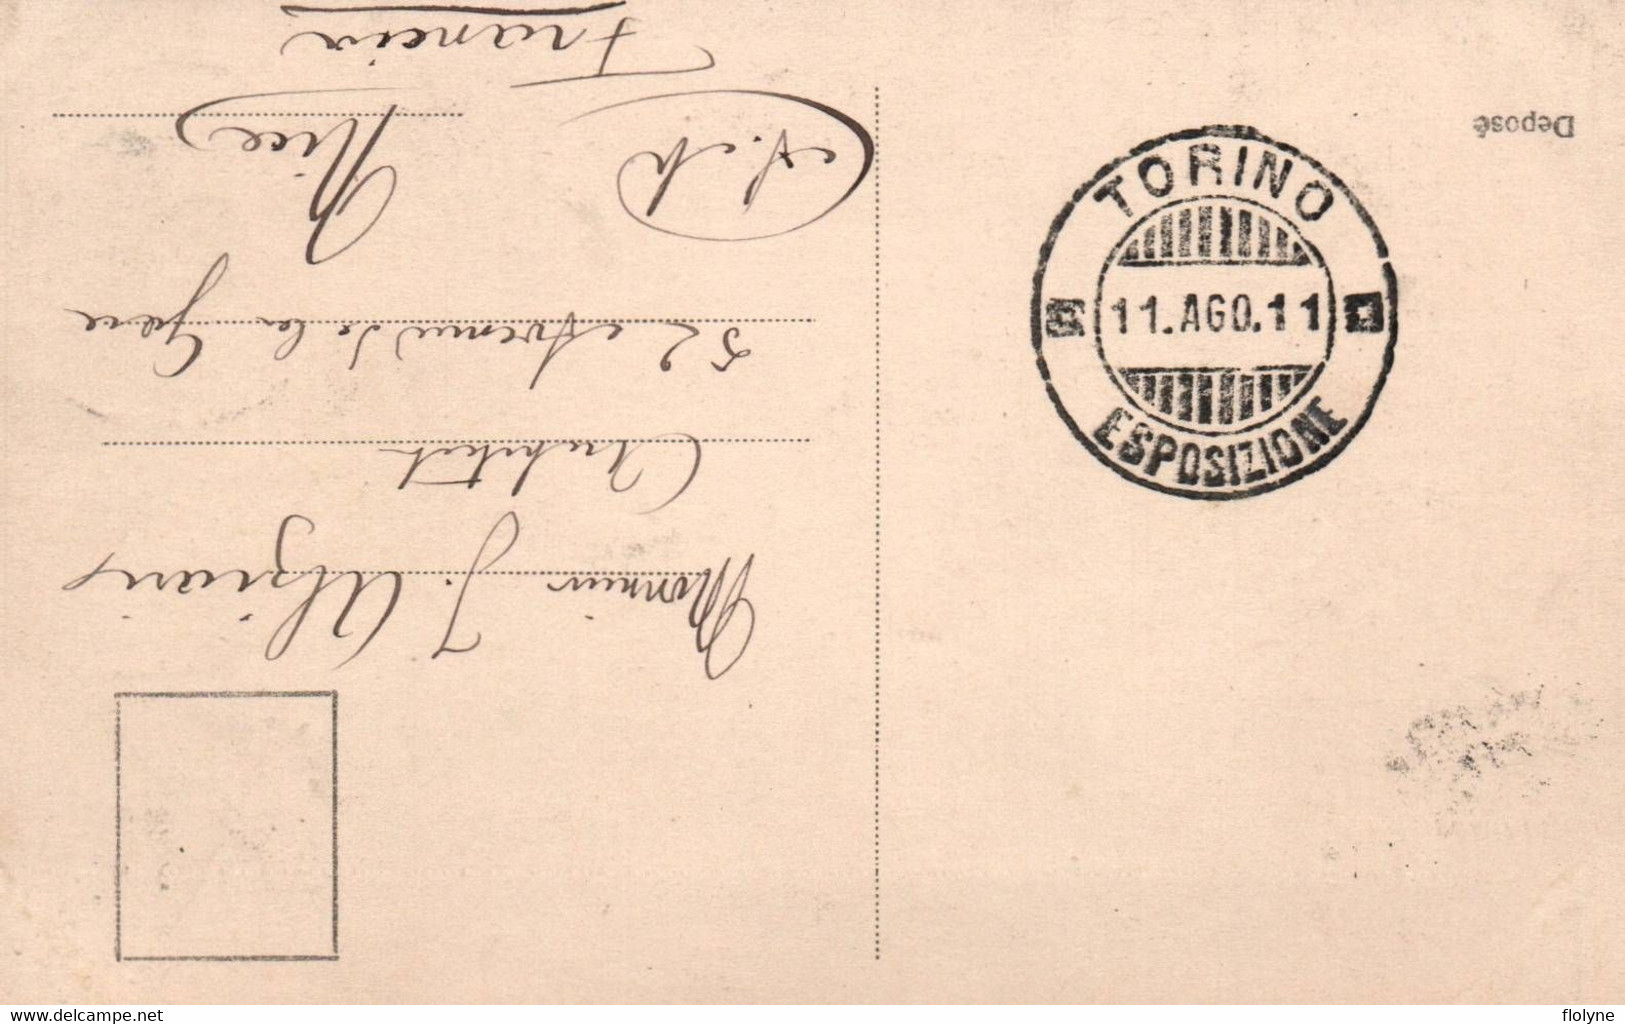 Deposé
TORINO
11.AGO.11
ESPOSIZIONE
Monsieur J. Alziary
Architect
52 Avenue de la Gare
Nice
A. M
Francia
www.delcampe.net
flolyne